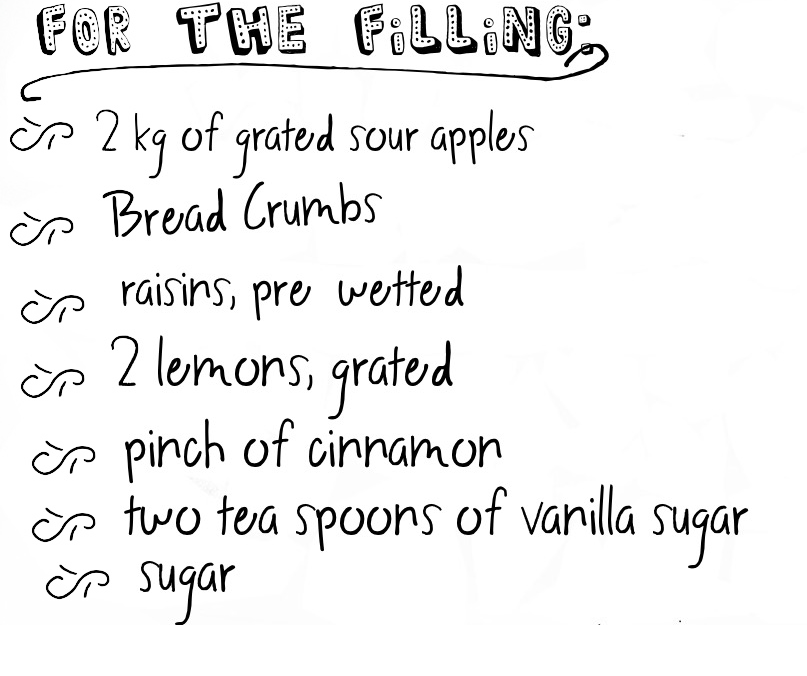 FOR THE FiLLiNG:
2 kg of grated sour apples
Bread Crumbs
raisins, pre wetted
2 lemons, grated
pinch of cinnamon
two tea spoons of vanilla sugar
sugar